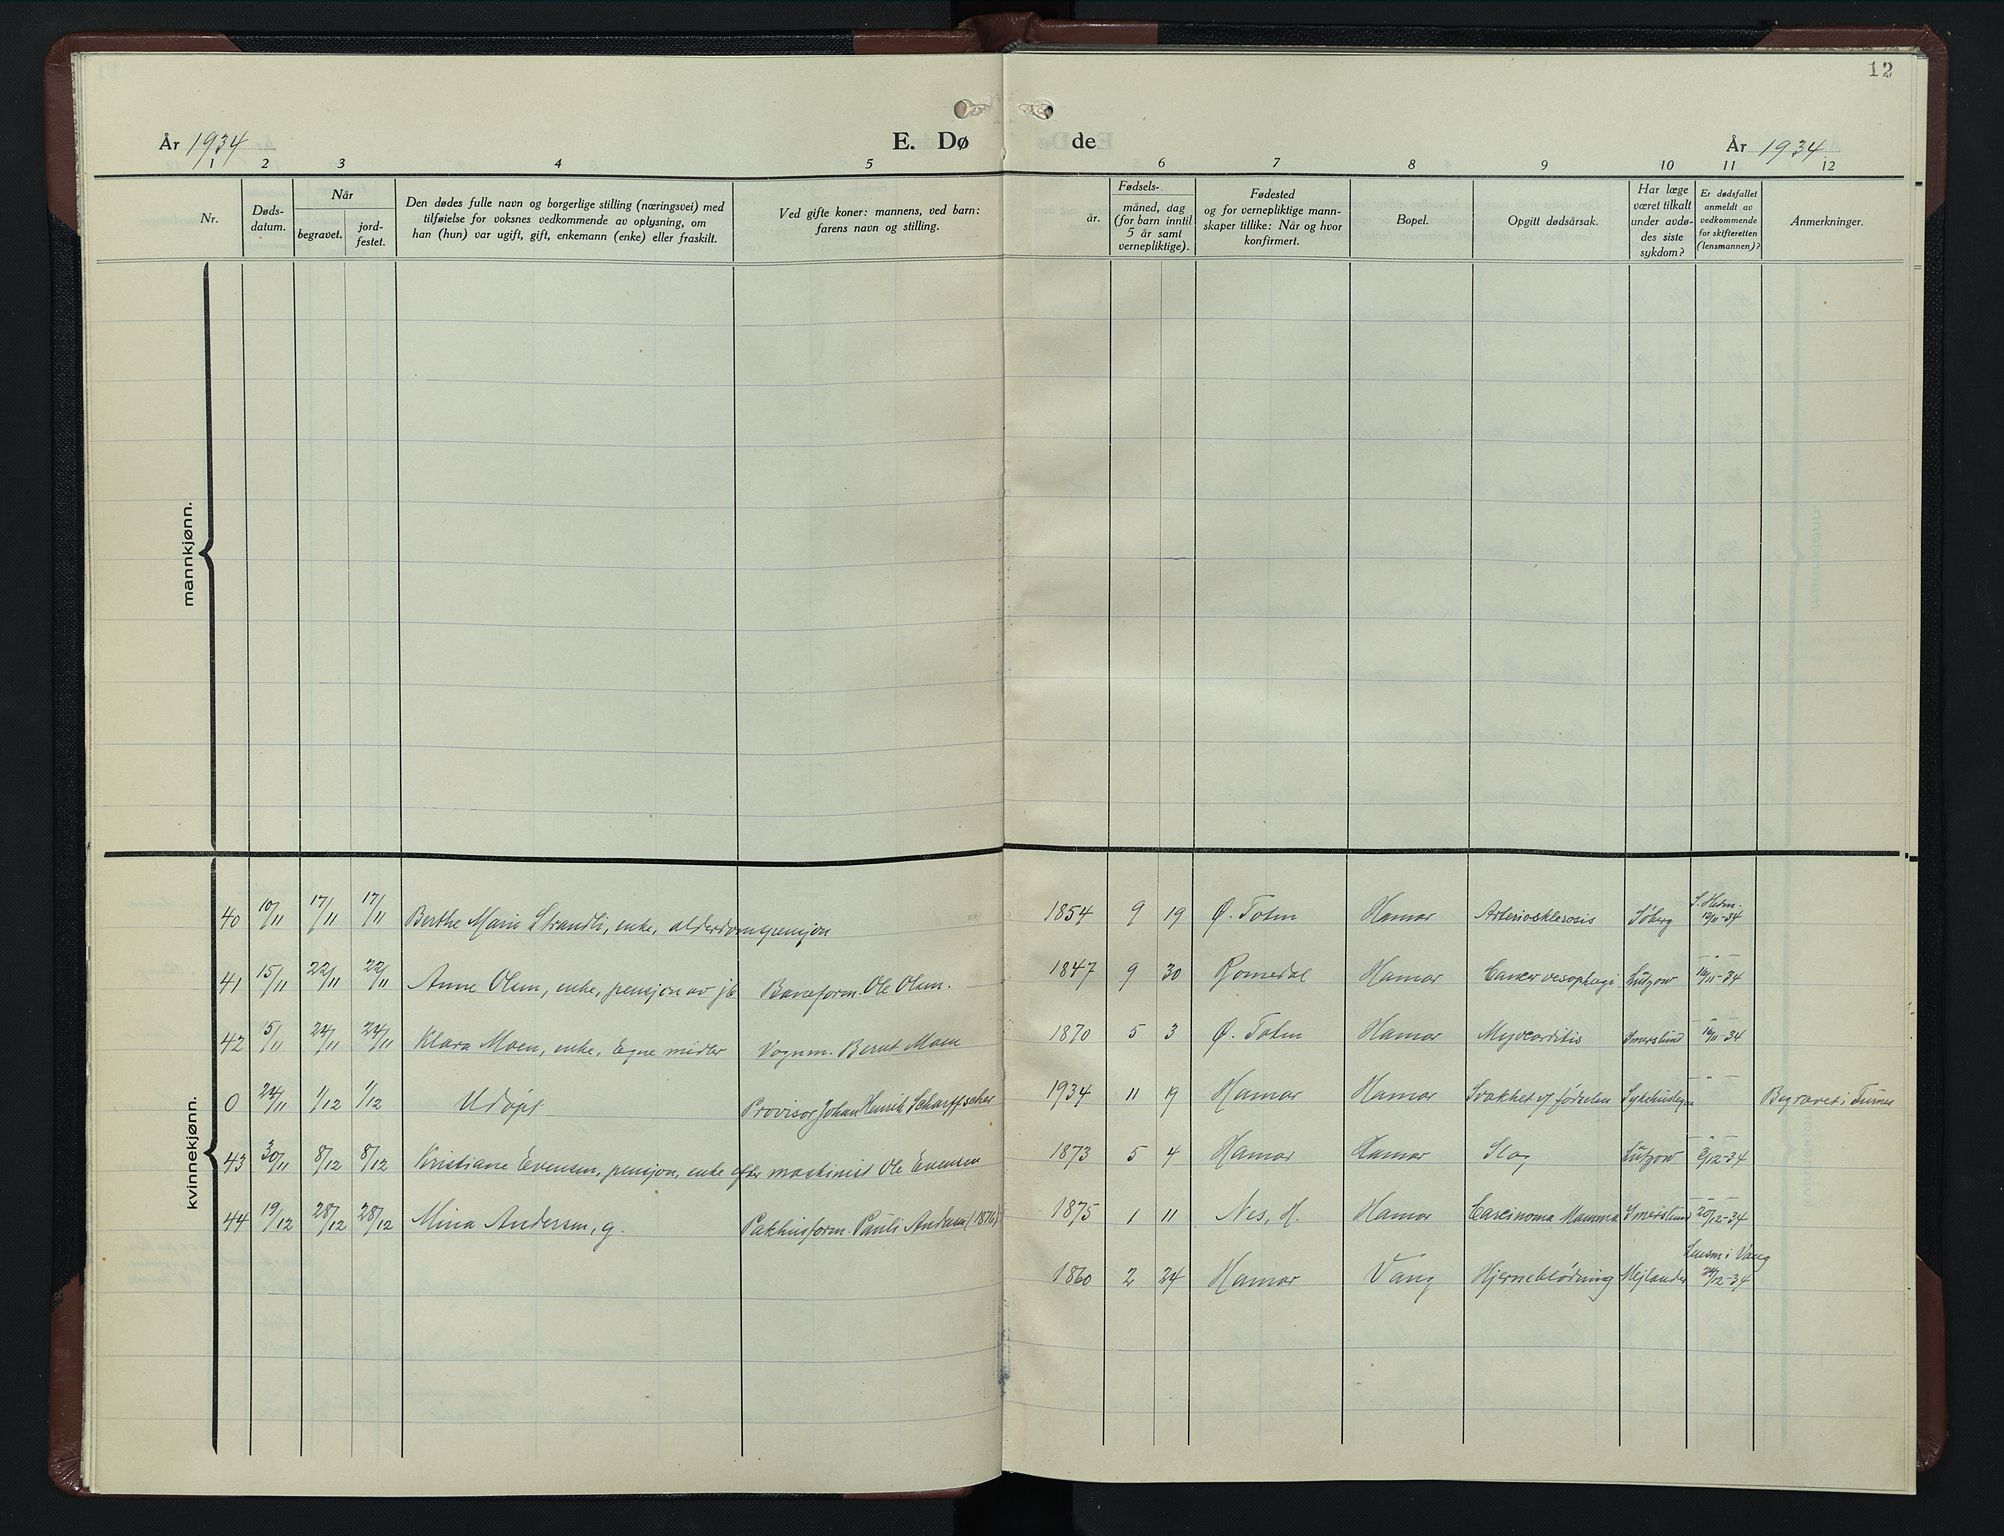 12
År 1934 E. Dø de År 1934
1 2 3 4 5 6 7 8 9 10 11 12
Nr.
Døds-
datum.
Når
begravet.
jord-
festet.
Den dødes fulle navn og borgerlige stilling (næringsvei) med
tilføielse for voksnes vedkommende av oplysning, om
han (hun) var ugift, gift, enkemann (enke) eller fraskilt.
Ved gifte koner: mannens, ved barn:
farens navn og stilling.
Fødsels-
år.
måned, dag
(for barn inntil
5 år samt
vernepliktige).
Fødested
og for vernepliktige mann-
skaper tillike: Når og hvor
konfirmert.
Bopel.
Opgitt dødsårsak.
Har læge
været tilkalt
under avdø-
des siste
sykdom?
Er dødsfallet
anmeldt av
vedkommende
for skifteretten
(lensmannen)?
Anmerkninger.
mannkjønn.
kvinnekjønn.
40 10/11 17/11 17/11 Berthe Marie Strandli, enke, alderdomspensjon 1854 9 19 Ø. Toten Hamar Arteriosklerosis Søberg S. Hedm. 12/11-34
41 15/11 22/11 22/11 Anne Olsen, enke, pensjon av jb Baneform. Ole Olsen. 1847 9 30 Romedal Hamar Cancer oesophagi Lützow -"- 16/11-34
42 15/11 24/11 24/11 Klara Moen, enke, Egne midler Vognm. Bernt Moen 1870 5 3 Ø. Toten Hamar Myocarditis Smerslund -"- 16/11-34
0 24/11 1/12 1/12 Udøpt Provisor Johan Henrik Scharffscher 1934 11 19 Hamar Hamar Svakhet ef fødselen Sykehuslegen -"- Begravet i Furnes
43 30/11 8/12 8/12 Kristiane Evensen, pensjon, enke efter maskinist Ole Evensen 1873 5 4 Hamar Hamar Slag Lützow -"- /12-34
44 19/12 28/12 28/12 Mina Andersen, g. Pakhusform. Pauli Andersen (1876) 1875 1 11 Nes, H. Hamar Carcinoma Mamma Smerslund -"- 20/12-34
1860 2 24 Hamar Vang Hjerneblødning Mejlander Lensm i Vang /12-34